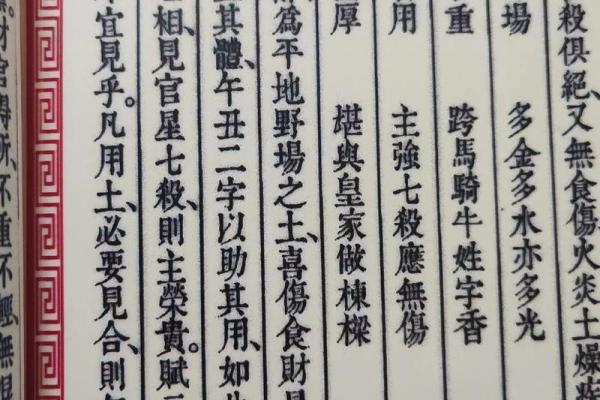 殺俱絕、又無食傷火炎土燥
場 多金多水亦多光
重 跨馬騎牛姓字香
用 主強七殺應無傷
厚 堪與皇家做棟樑
為平地野場之土、喜傷食財
其體、午丑二字以助其用、如
相、見官星七殺、則主榮貴。賦
宜見乎。凡用土、必要見合、則
財官得所、不重不輕、無